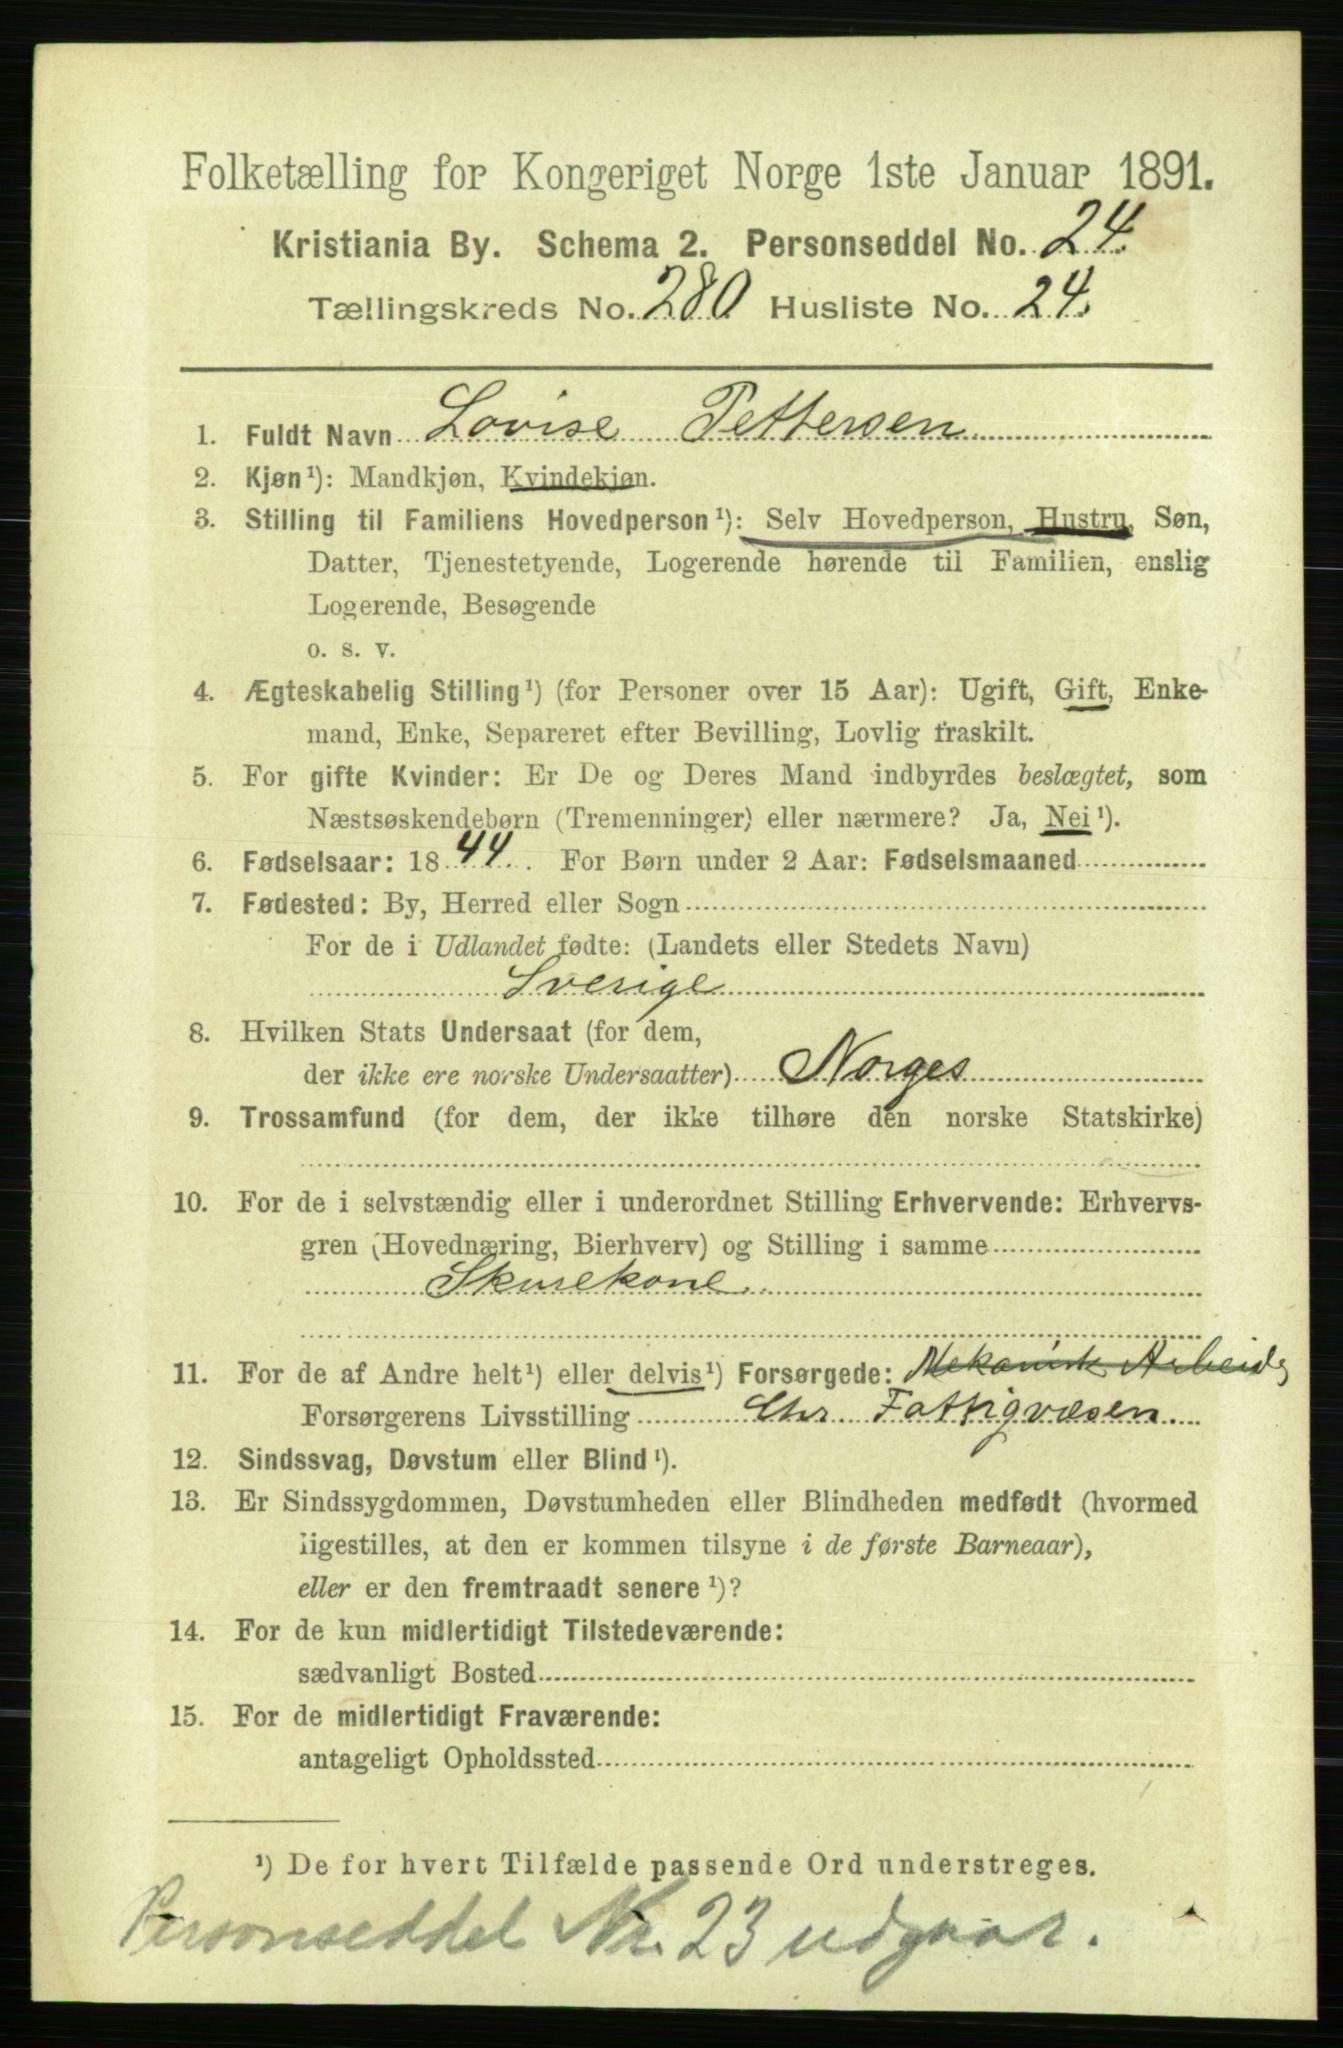 Folketælling for Kongeriget Norge 1ste Januar 1891.
Kristiania By. Schema 2. Personseddel No. 24.
Tællingskreds No. 280 Husliste No. 24.
1. Fuldt Navn Lovise Pettersen
2. Kjøn¹): Mandkjøn, Kvindekjøn.
3. Stilling til Familiens Hovedperson¹): Selv Hovedperson, Hustru, Søn,
Datter, Tjenestetyende, Logerende hørende til Familien, enslig
Logerende, Besøgende
o. s. v.
4. Ægteskabelig Stilling¹) (for Personer over 15 Aar): Ugift, Gift, Enke-
mand, Enke, Separeret efter Bevilling, Lovlig fraskilt.
5. For gifte Kvinder: Er De og Deres Mand indbyrdes beslægtet, som
Næstsøskendebørn (Tremenninger) eller nærmere? Ja, Nei¹).
6. Fødselsaar: 1844. For Børn under 2 Aar: Fødselsmaaned
7. Fødested: By, Herred eller Sogn
For de i Udlandet fødte: (Landets eller Stedets Navn)
Sverige
8. Hvilken Stats Undersaat (for dem,
der ikke ere norske Undersaatter) Norges
9. Trossamfund (for dem, der ikke tilhøre den norske Statskirke)
10. For de i selvstændig eller i underordnet Stilling Erhvervende: Erhvervs-
gren (Hovednæring, Bierhverv) og Stilling i samme
Skurekone
11. For de af Andre helt¹) eller delvis¹) Forsørgede: Mekanisk Arbeid
Forsørgerens Livsstilling Chr Fattigvæsen
12. Sindssvag, Døvstum eller Blind¹).
13. Er Sindssygdommen, Døvstumheden eller Blindheden medfødt (hvormed
ligestilles, at den er kommen tilsyne i de første Barneaar),
eller er den fremtraadt senere¹)?
14. For de kun midlertidigt Tilstedeværende:
sædvanligt Bosted
15. For de midlertidigt Fraværende:
antageligt Opholdssted
¹) De for hvert Tilfælde passende Ord understreges.
Personseddel Nr. 23 udgaar.